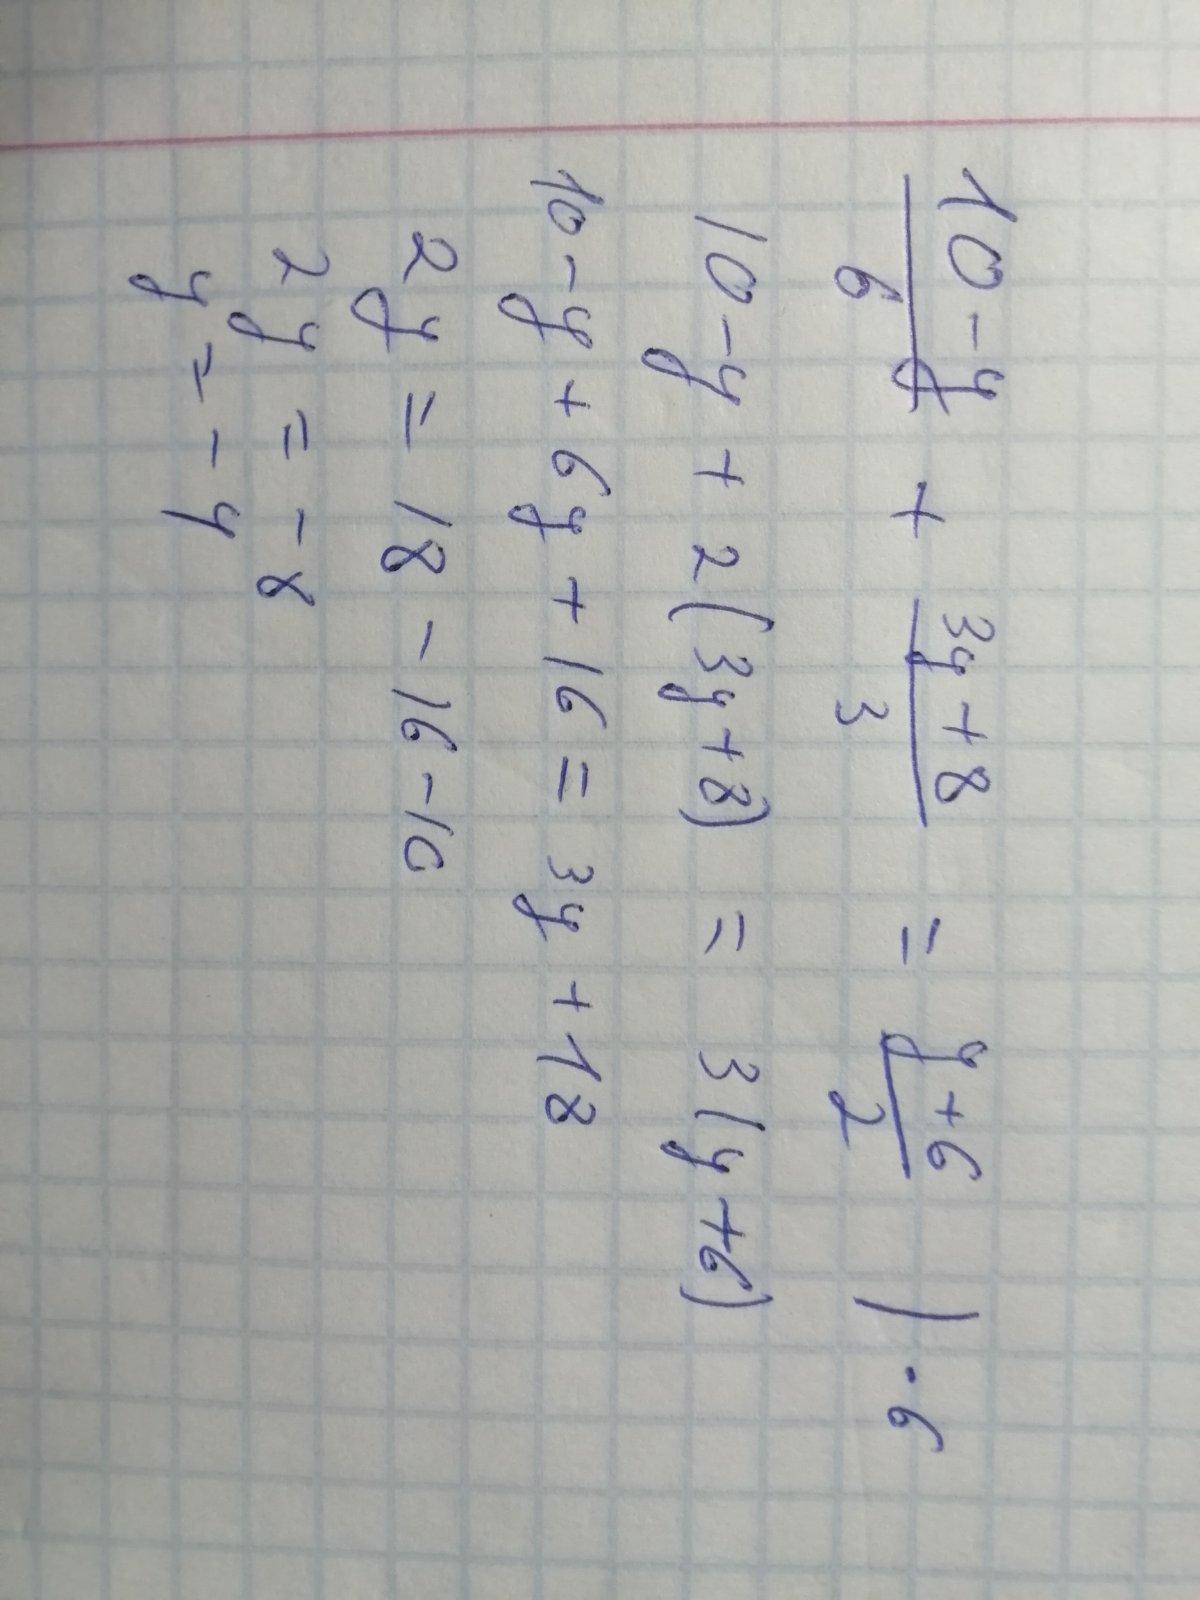 10-y/6 + 3y+8/3 = y+6/2 | ·6
10-y+2(3y+8) = 3(y+6)
10-y+6y+16=3y+18
2y=18-16-10
2y=-8
y=-4